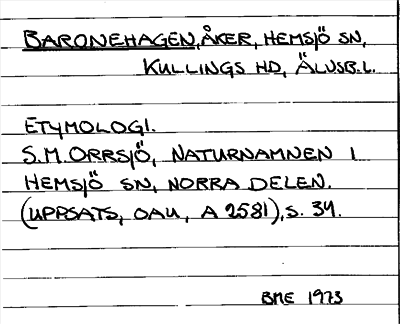 BARONEHAGEN, ÅKER, HEMSJÖ SN,
KULLINGS HD, ÄLVSB. L.
ETYMOLOGI.
S.M. ORRSJÖ, NATURNAMNEN I
HEMSJÖ SN, NORRA DELEN.
(UPPSATS, OAU, A 2581), S. 34.
BME 1973